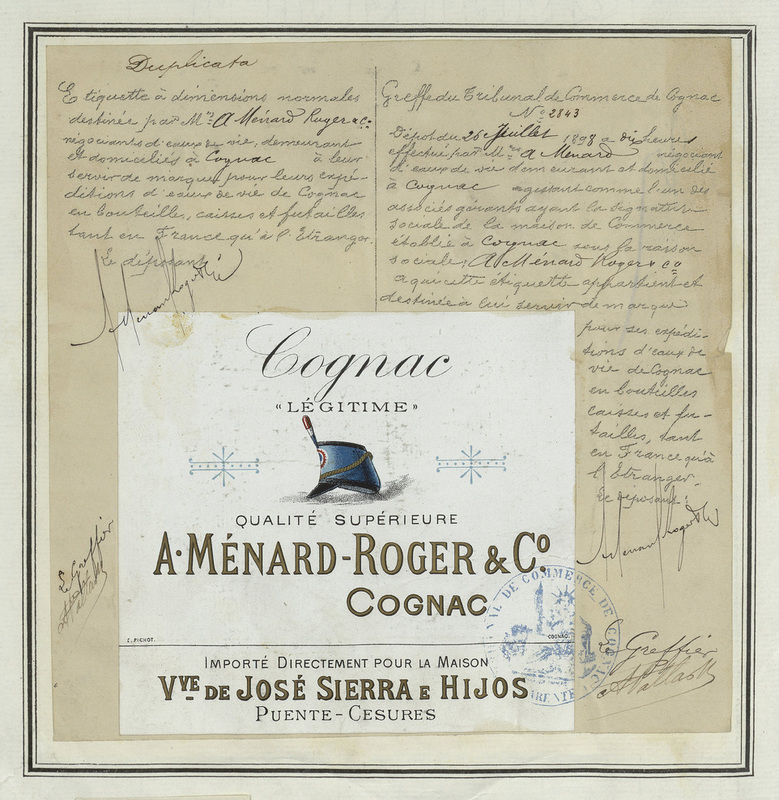 Duplicata
Etiquette à dimensions normales
destinée par Mrs A Ménard Roger & Co
négociants d'eaux de vie, demeurant
et domiciliés à Cognac à leur
servir de marque pour leurs expé-
ditions d'eaux de vie de Cognac
en bouteilles, caisses et futailles
tant en France qu'à l'Etranger.
Le déposant
A Ménard Roger & Cie
Greffe du Tribunal de Commerce de Cognac
No 2843
Dépôt du 26 Juillet 1898 à dix heures
effectué par M. A Ménard négociant
d'eaux de vie demeurant et domicilié
à Cognac agissant comme l'un des
associés gérants ayant la signature
sociale de la maison de Commerce
établie à Cognac sous la raison
sociale, A Ménard Roger & Co
a qui cette étiquette appartient et
destinée à lui servir de marque
pour ses expédi-
tions d'eaux de
vie de Cognac
en bouteilles
caisses et fu-
tailles, tant
en France qu'à
l'Etranger.
Le déposant:
A Ménard Roger & Cie
Cognac
«LÉGITIME»
QUALITÉ SUPÉRIEURE
A·MÉNARD-ROGER & Co
COGNAC
E. PICHOT.
COGNAC
IMPORTÉ DIRECTEMENT POUR LA MAISON
VVE DE JOSÉ SIERRA E HIJOS
PUENTE-CESURES
DE COMMERCE DE COGNAC
Le Greffier
Le Greffier